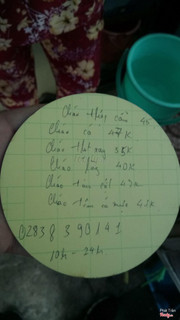 Cháo thắng cẩn 45
Cháo cá 47K
Cháo thịt nạy 35K
Cháo lòng 40K
Cháo tim cật 47K
Cháo tôm cá mực 47K
02838390141
10h - 24h